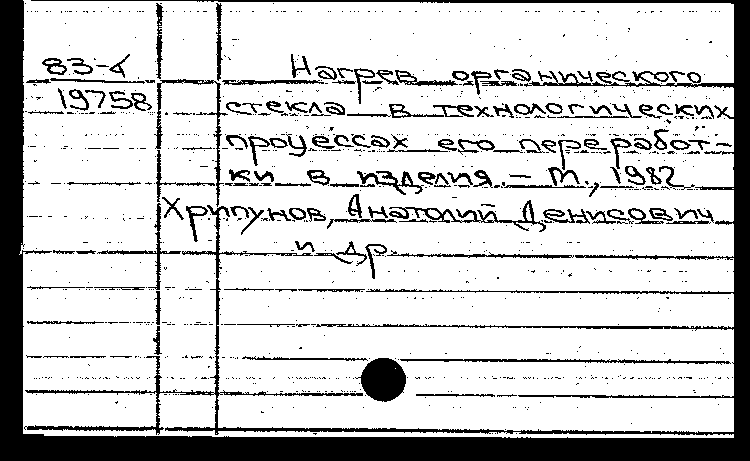 83-4
19758
Нагрев органического
стекла в технологических
процессах его переработ-
ки в изделия. - М., 1982.
Хрипунов, Анатолий Денисович
и др.